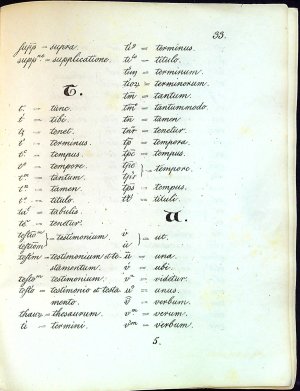 33.
supp = supra.
supp^ne = supplicatione.
T.
t^c = tunc.
t^i = tibi.
tȝ = tenet.
t^s = terminus.
t^s = tempus.
t^e = tempore
t^m = tantum.
t^n = tamen.
t^o = titulo.
ta^s = tabulis.
te^r = tenetur.
testo^m
testiom } = testimonium
testm = testimonium et testamentum.
testo^m = testimonium.
testo = testimonio et testamento.
thaur^m = thesaurum.
ti = termini.
ti^o = terminus.
ti^lo = titulo.
tm = terminum.
tiou = terminorum.
tm = tantum.
tm^o = tantummodo.
tn = tamen
tn^r = tenetur.
tp = tempora.
tpc = tempus.
tpe
tpr } = tempore
tps = tempus.
tt^i = tituli
U.
v
u } = ut.
u = una.
v = ubi.
v^r = videtur.
u^9 = unus.
v = verbum.
v^m = verum.
v^bm = verbum.
5.